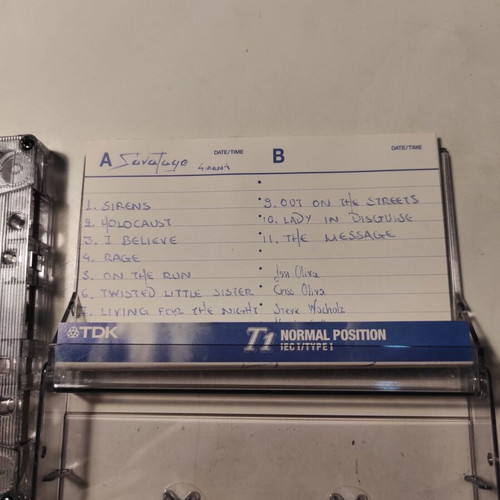 A Savatage DATE/TIME
B DATE/TIME
1. SIRENS
2. HOLOCAUST
3. I BELIEVE
4. RAGE
5. ON THE RUN
6. TWISTED LITTLE SISTER
7. LIVING FOR THE NIGHT
9. OUT ON THE STREETS
10. LADY IN DISGUISE
11. THE MESSAGE
Jon Oliva
Criss Oliva
Steve Wacholz
TDK
T1 NORMAL POSITION
IEC I/TYPE I